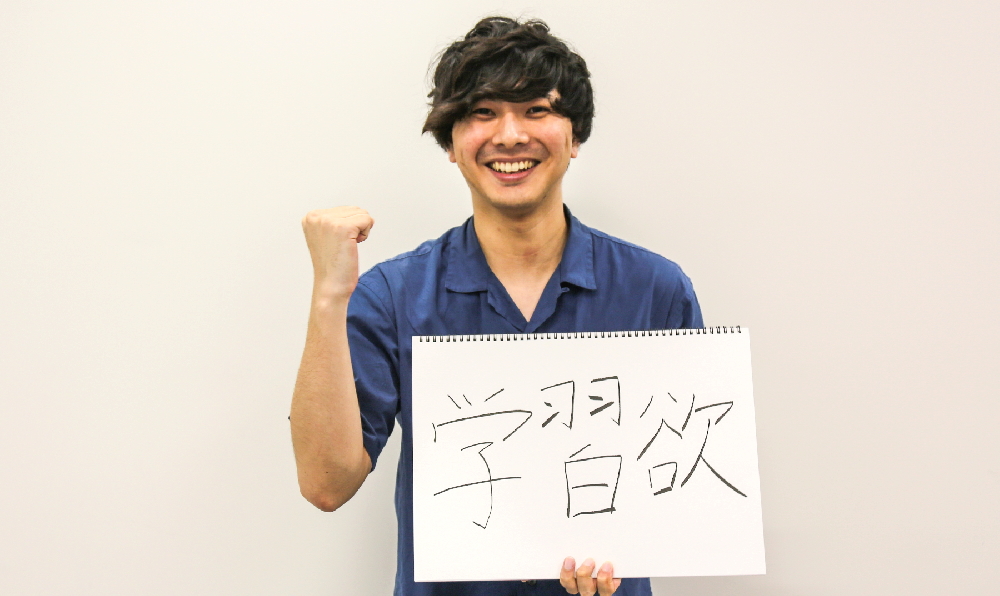 学習欲